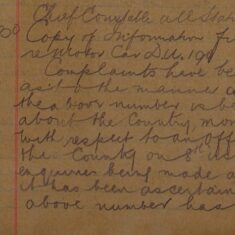 Chief Constable all Stat
Copy of Information f
re Motor Car D.U. 19
Complaints have be
as to the manner
the above number is be
about the Country, mor
with respect to an off
this County on 8th
enquiries being made a
it has been ascertain
above number has